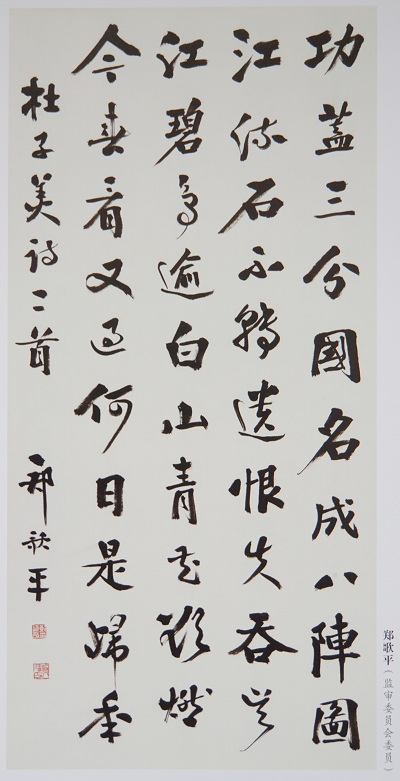 功蓋三分國名成八陣圖
江流石不轉遺恨失吞吴
江碧鸟逾白山青花欲燃
今春看又过何日是歸年
杜子美诗二首 郑歌平
郑歌平（监审委员会委员）